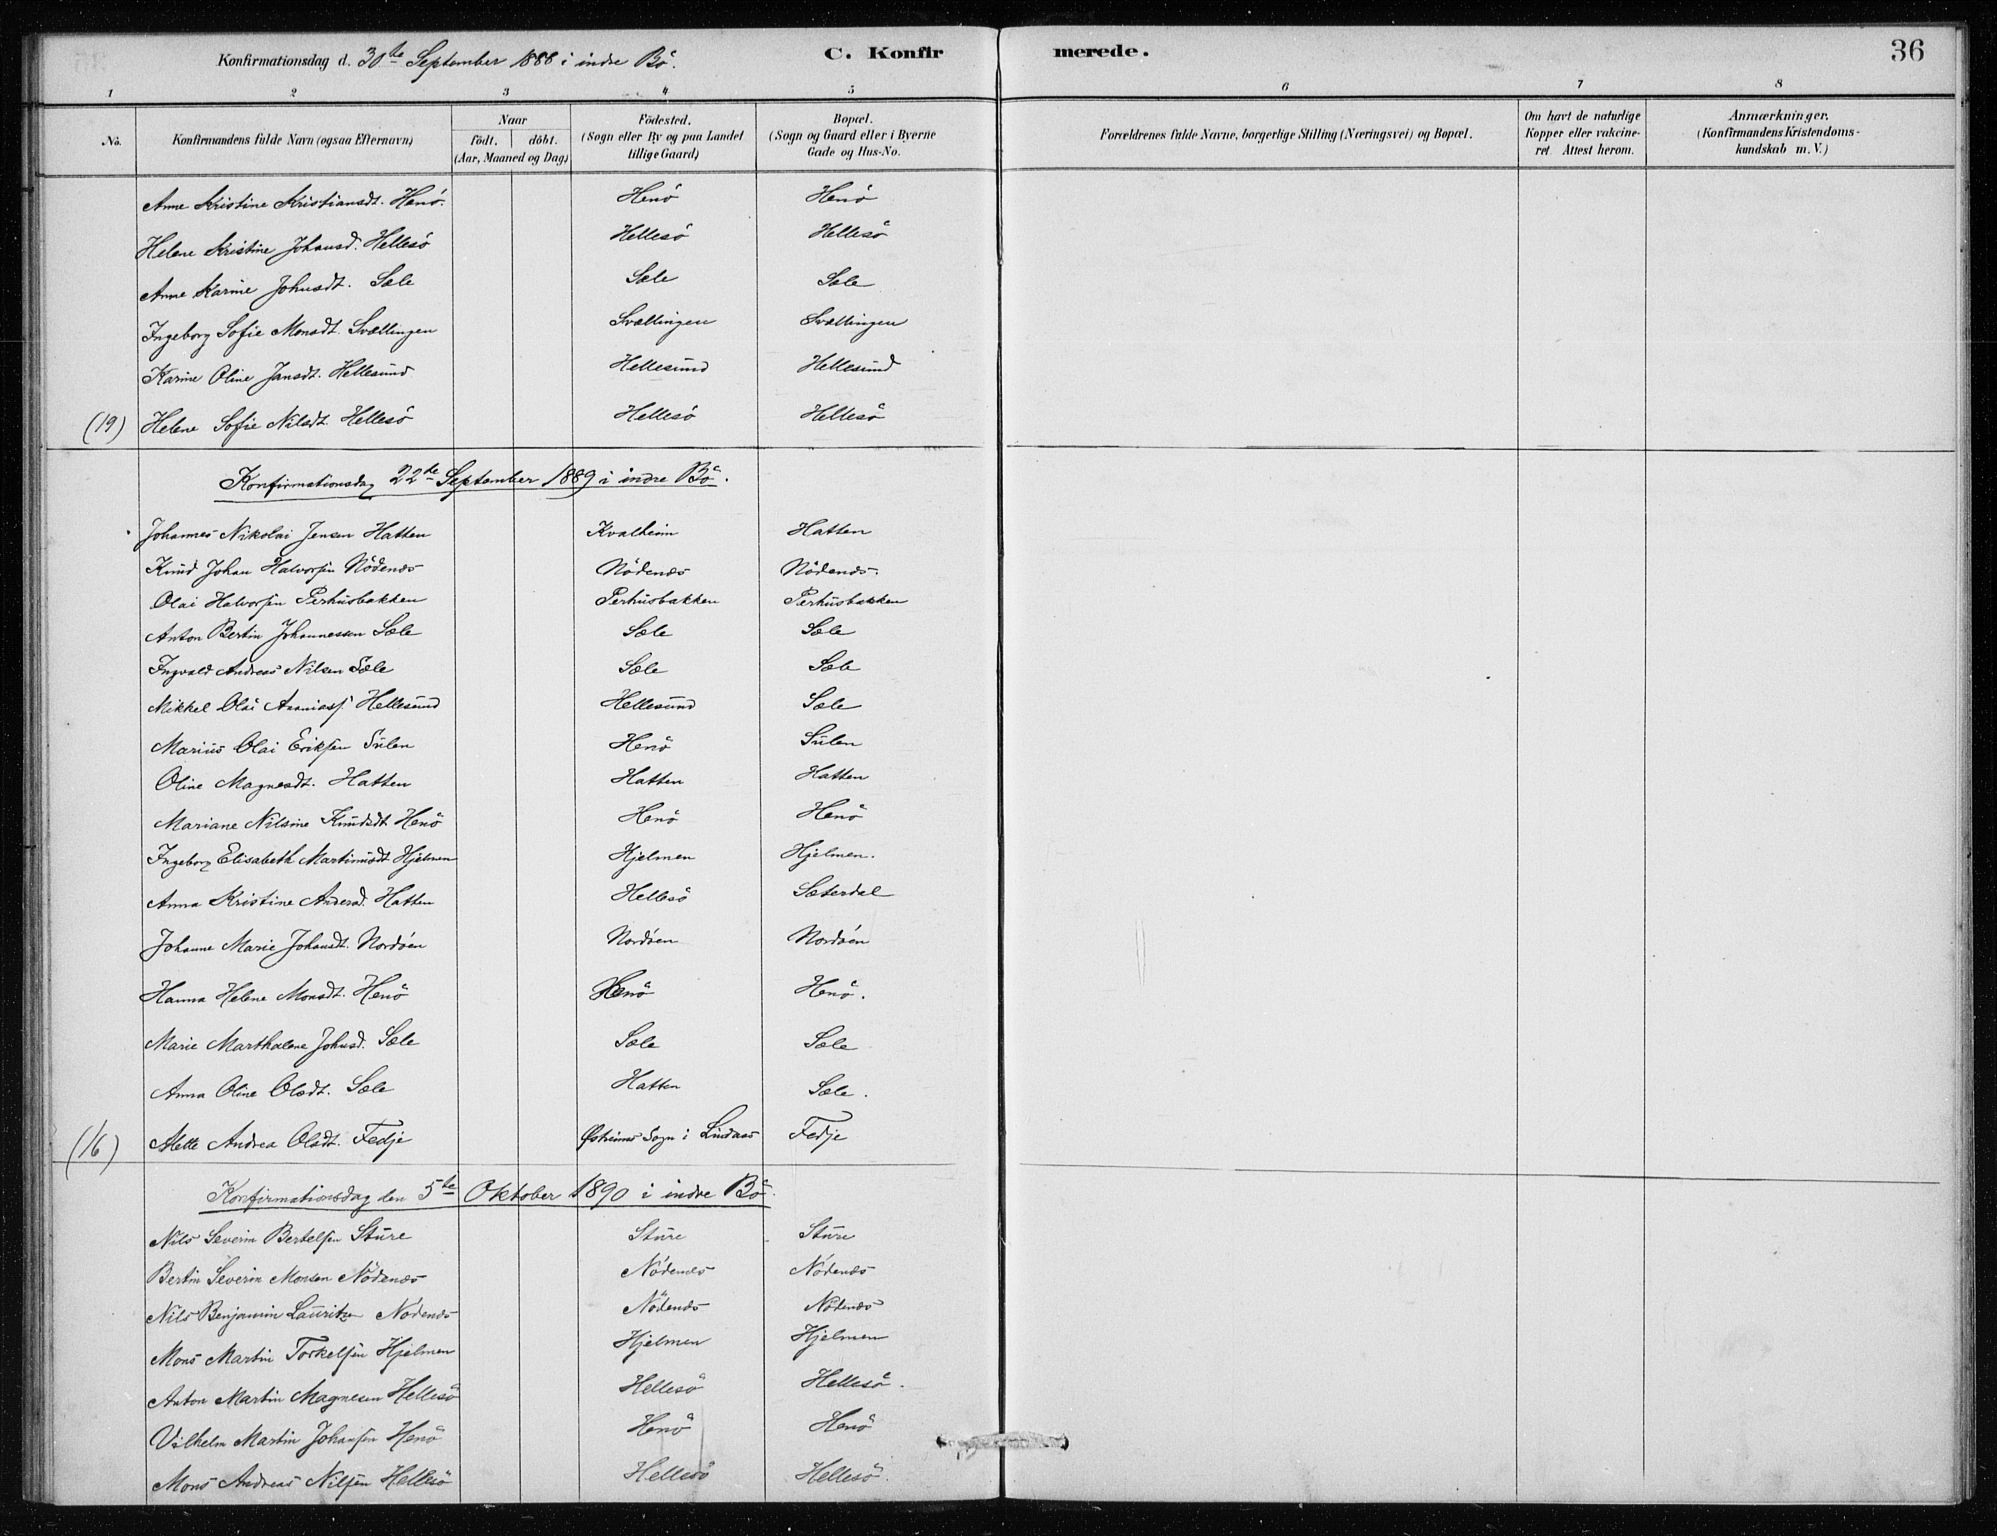 Konfirmationsdag d. 30te September 1888 i indre Bö.
C. Konfirmerede.
36
1 2 3 4 5 6 7 8
No.
Konfirmandens fulde Navn (ogsaa Efternavn)
Naar
födt. döbt.
(Aar, Maaned og Dag)
Födested.
(Sogn eller By og paa Landet
tillige Gaard)
Bopæl.
(Sogn og Gaard eller i Byerne
Gade og Hus-No.
Forældrenes fulde Navne, borgerlige Stilling (Næringsvei) og Bopæl.
Om havt de naturlige
Kopper eller vakcine-
ret. Attest herom.
Anmærkninger.
(Konfirmandens Kristendoms-
kundskab m. V.)
Anne Kristine Kristiansdt. Henö. Henö Henö
Helene Kristine Johansd. Hellesö Hellesö Hellesö
Anne Karine Johnsdt. Sæle Sæle Sæle
Ingeborg Sofie Monsdt. Svællingen Svællingen Svællingen
Karine Oline Jansdt. Hellesund Hellesund Hellesund
(19) Helene Sofie Nilsdt Hellesö Hellesö Hellesö
Konfirmationsdag 22de September 1889 i indre Bö.
Johannes Nikolai Jensen Hatten Kvalheim Hatten
Knud Johan Halvorsen Nödenæs Nödenæs Nödenæs.
Olai Halvorsen Perhusbakken Perhusbakken Perhusbakken
Anton Bertin Johannessen Sæle Sæle Sæle
Ingvald Andreas Nilsen Sæle Sæle Sæle
Mikkel Olai Ananiass. Hellesund Hellesund Sæle
Marius Olai Eriksen Sulen Henö Sulen
Oline Magnesdt. Hatten Hatten Hatten
Mariane Nilsine Knudsdt Henö Henö Henö
Ingeborg Elisabeth Martinusdt Hjelmen Hjelmen Hjelmen.
Anna Kristine Andersd. Hatten Hellesö Sæterdal
Johanne Marie Johansdt. Nordöen Nordöen Nordöen
Hanna Helene Monsdt. Henö Henö Henö.
Marie Marthalene Johnsd. Sæle Sæle Sæle
Anna Oline Olsdt. Sæle Hatten Sæle.
(16) Mette Andrea Olsdt. Fedje Østreims Sogn i Lindaas Fedje
Konfirmationsdag den 5te Oktober 1890 i indre Bö.
Nils Severin Bertelsen Sture Sture Sture
Bertin Severin Monsen Nödenæs Nödenæs Nödenæs
Nils Benjamin Lauritzen Nodenæs Nödenæs Nödenæs
Mons Martin Torkelsen Hjelmen Hjelmen Hjelmen
Anton Martin Magnesen Hellesö Hellesö Hellesö.
Vilhelm Martin Johansen Henö Henö Henö
Mons Andreas Nilsen Hellesö Hellesö Hellesö.